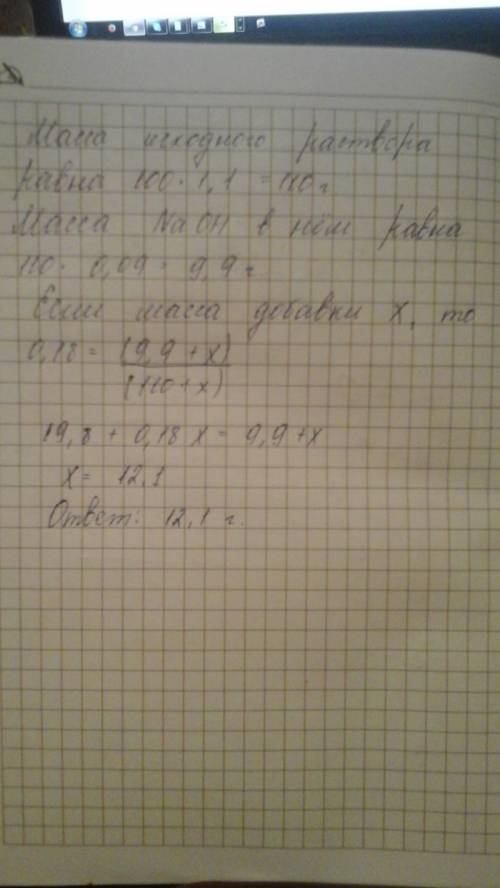 Масса исходного раствора
равна 100 · 1,1 = 110 г
Масса NaOH в нём равна
110 · 0,09 = 9,9 г
Если масса добавки X, то
0,18 = (9,9 + x)
(110 + x)
19,8 + 0,18 x = 9,9 + x
X = 12,1
Ответ: 12,1 г.